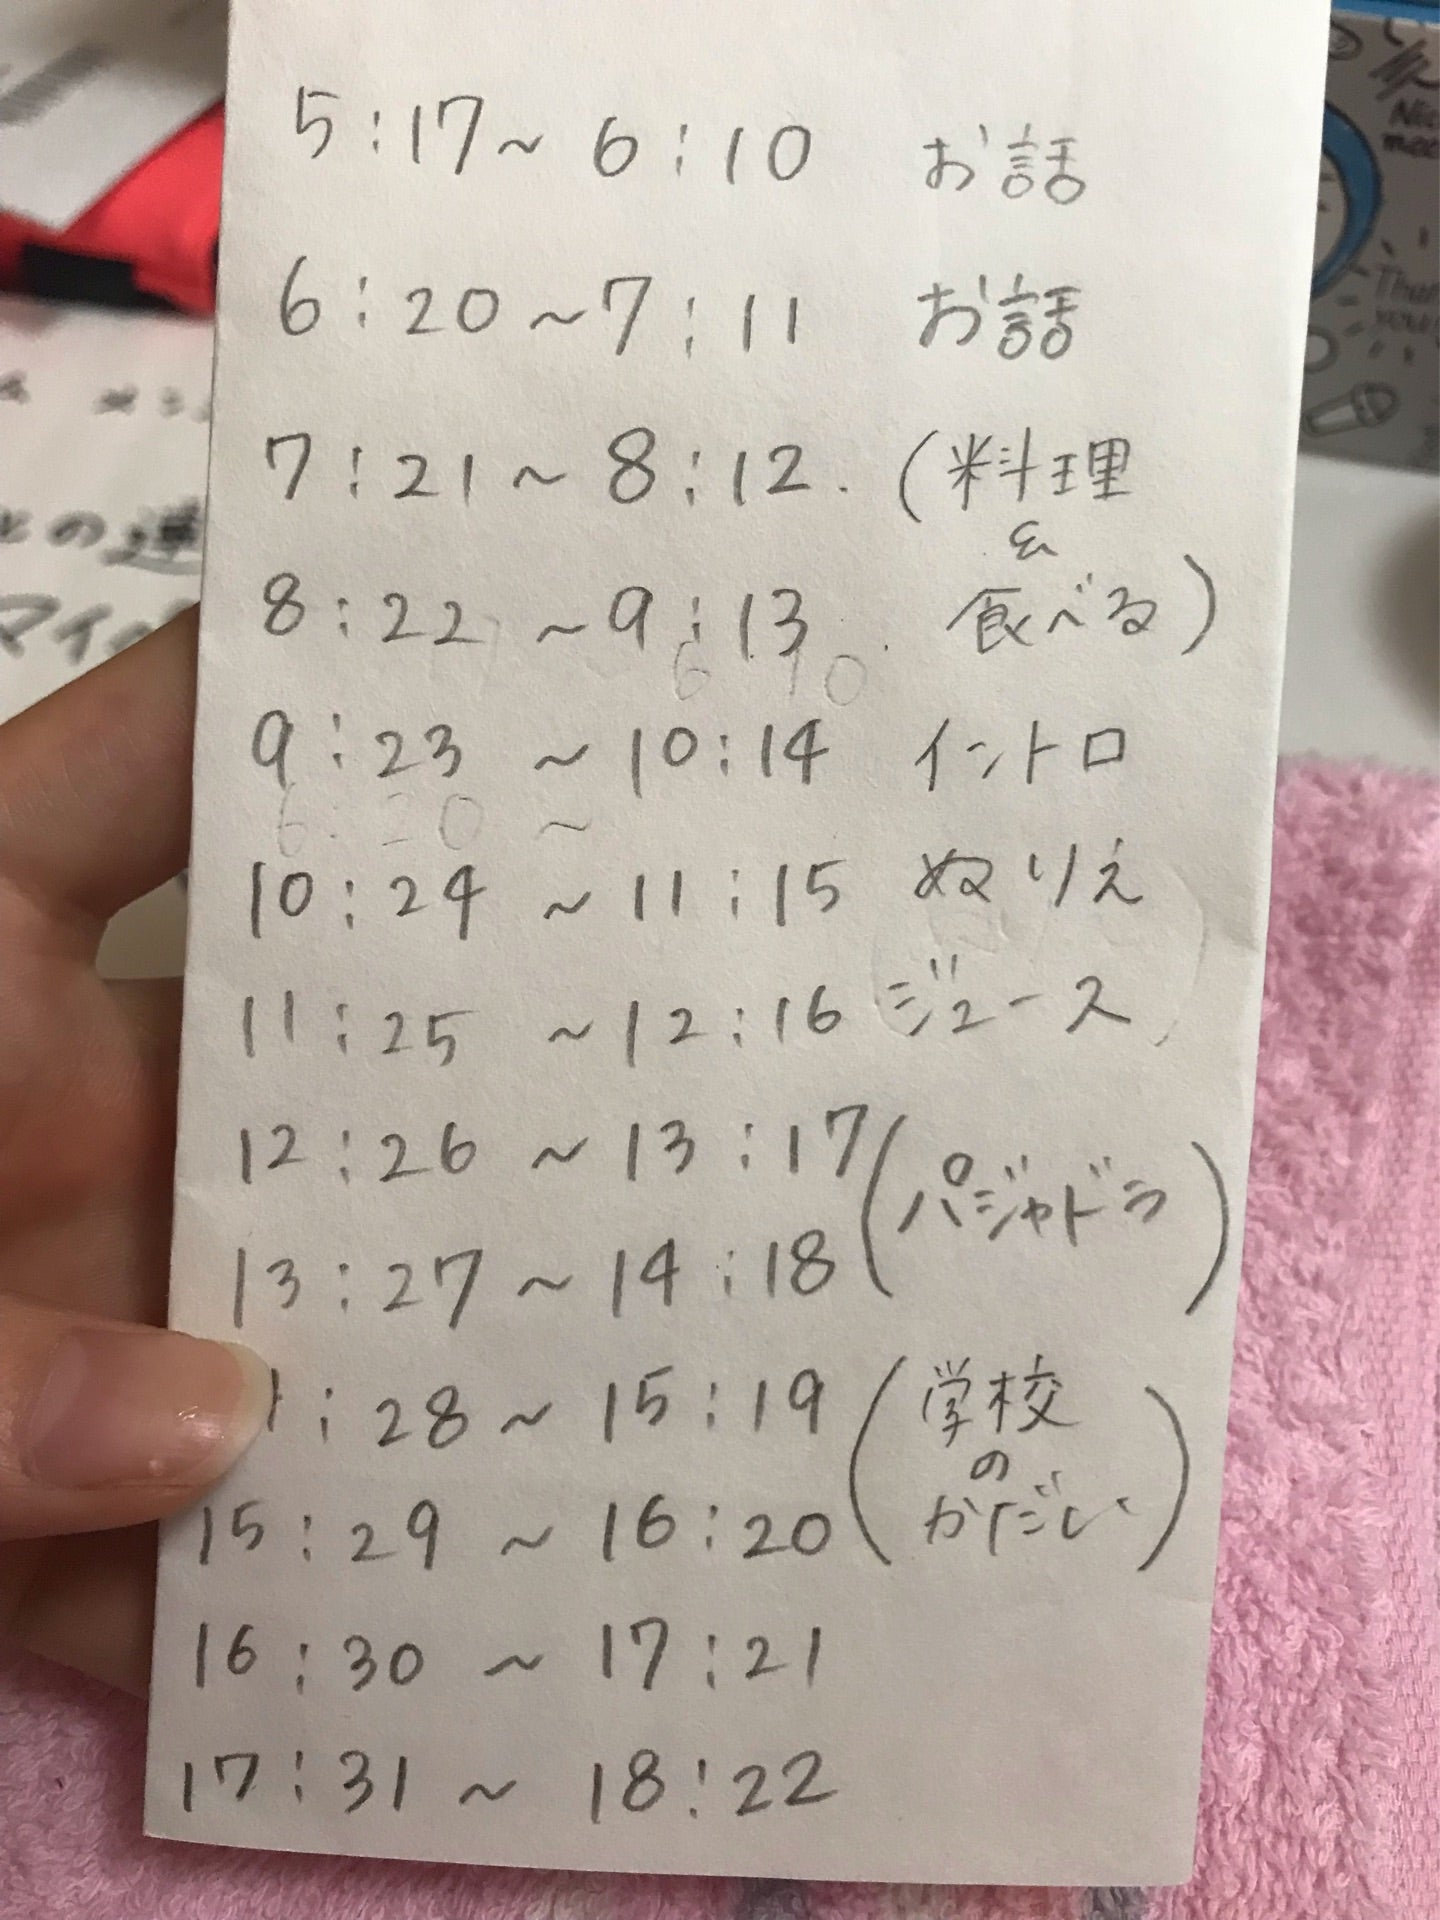 5:17～6:10 お話
6:20～7:11 お話
7:21～8:12. (料理
&
8:22～9:13. 食べる)
9:23～10:14 イントロ
6:20～
10:24～11:15 ぬりえ
11:25～12:16 ジュース
12:26～13:17
(パジャドラ)
13:27～14:18
:28～15:19 (学校
の
15:29～16:20 かだい)
16:30～17:21
17:31～18:22
との連
マイク
Nic
mee